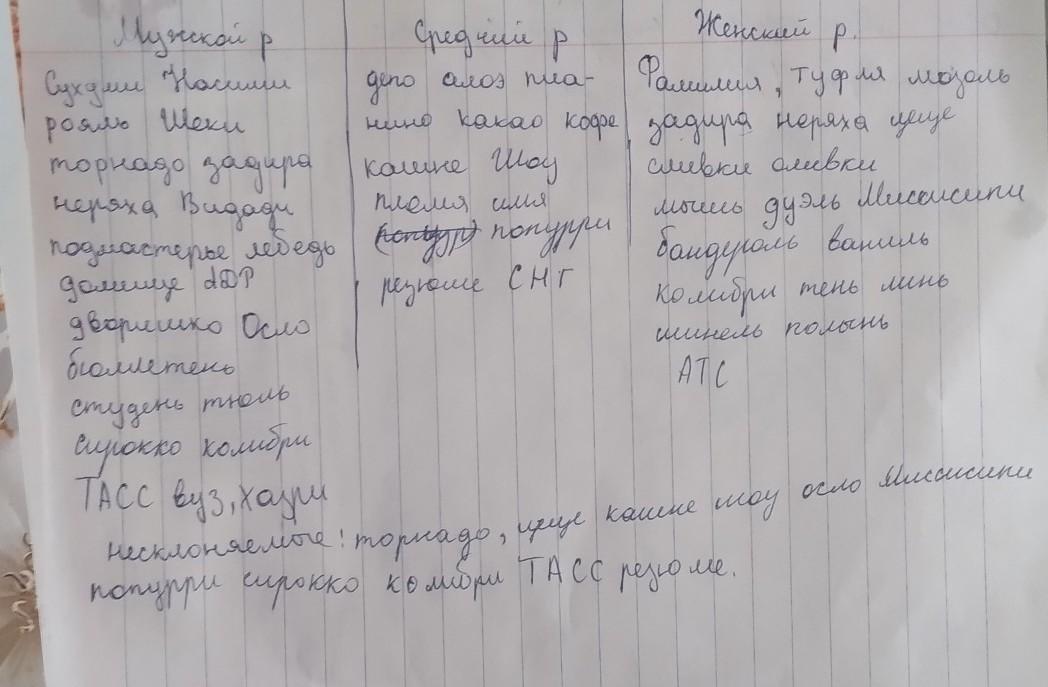 Мужской р
Сухуми Насими
рояль Шеки
торнадо задира
неряха Видади
подмастерье лебедь
домище
дворишко Осло
бюллетень
студень тюль
сирокко колибри
ТАСС вуз, хазри
Средний р
депо алоэ пиа-
нино какао кофе
кашне Шоу
племя имя
попурри
резюме СНГ
Женский р.
Фамилия, туфля мозоль
задира неряха цеце
сливки оливки
мышь дуэль Миссисипи
бандероль ваниль
колибри тень линь
шинель полынь
АТС
несклоняемые: торнадо, цеце кашне шоу осло Миссисипи
попурри сирокко колибри ТАСС резюме.